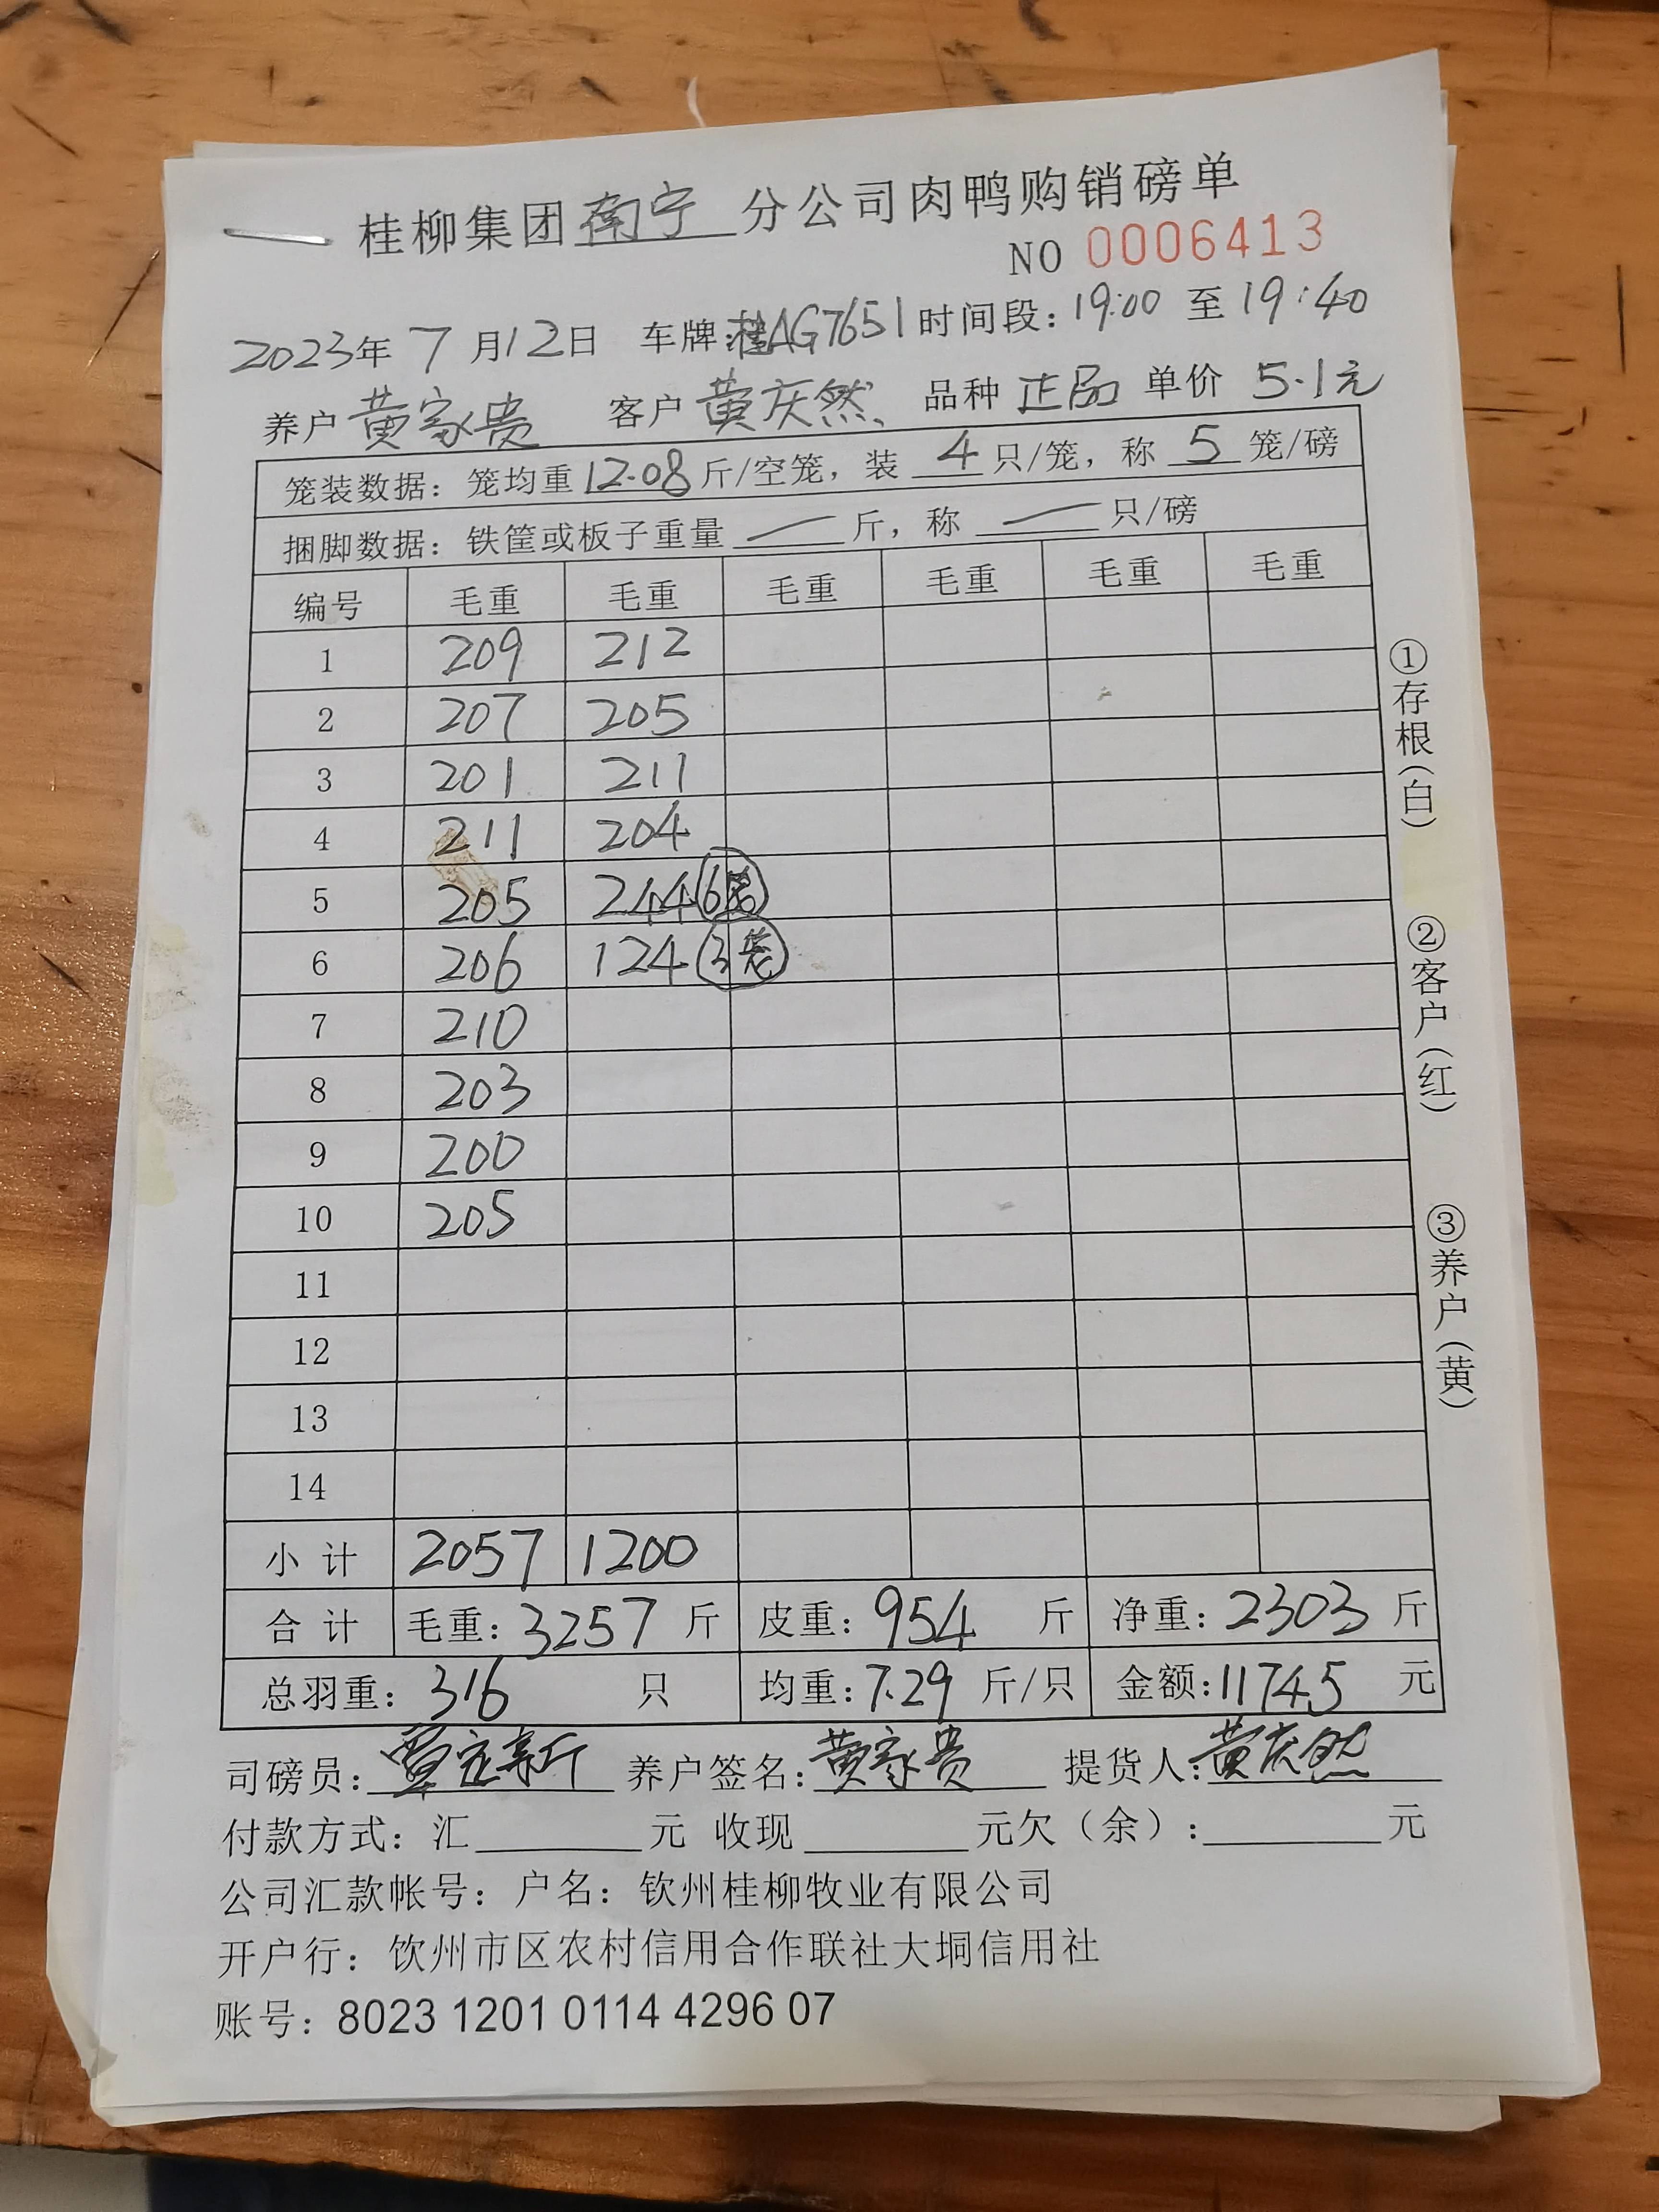 桂柳集团南宁分公司肉鸭购销磅单
NO 0006413
2023年 7月12日 车牌:桂AG7651 时间段：19:00 至 19:40
养户 黄家贵 客户 黄庆然 品种 正品 单价 5.1元
笼装数据：笼均重12.08斤/空笼，装 4 只/笼，称 5 笼/磅
捆脚数据：铁筐或板子重量 — 斤，称 — 只/磅
编号 毛重 毛重 毛重 毛重 毛重 毛重
1 209 212
2 207 205
3 201 211
4 211 204
5 205 244 6笼
6 206 124 3笼
7 210
8 203
9 200
10 205
11
12
13
14
小 计 2057 1200
合 计 毛重：3257 斤 皮重：954 斤 净重：2303 斤
总羽重：316 只 均重：7.29 斤/只 金额：11745 元
司磅员：覃定新 养户签名：黄家贵 提货人：黄庆然
付款方式：汇 元 收现 元欠（余）： 元
公司汇款帐号：户名：钦州桂柳牧业有限公司
开户行：钦州市区农村信用合作联社大垌信用社
账号：8023 1201 0114 4296 07
①存根（白）
②客户（红）
③养户（黄）